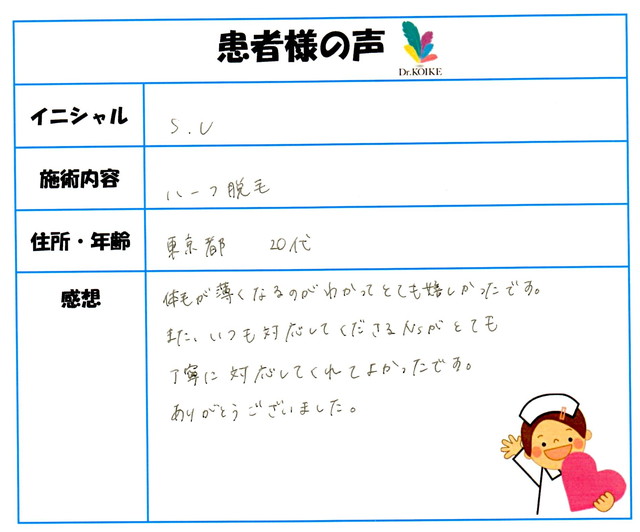 患者様の声
Dr.KOIKE
イニシャル
S.U
施術内容
ハーフ脱毛
住所・年齢
東京都 20代
感想
体毛が薄くなるのがわかってとても嬉しかったです。
また、いつも対応してくださるNsがとても
丁寧に対応してくれてよかったです。
ありがとうございました。